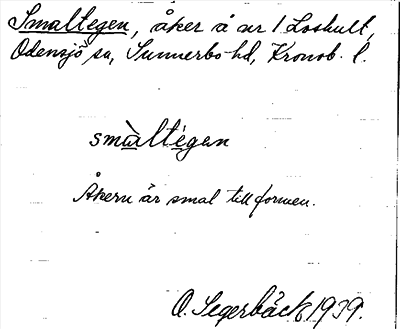 Smaltegen, åker å nr 1 Loshult,
Odensjö sn, Sunnerbo hd, Kronob. l.
smàltégen
Åkern är smal till formen.
O. Segerbäck 1939.